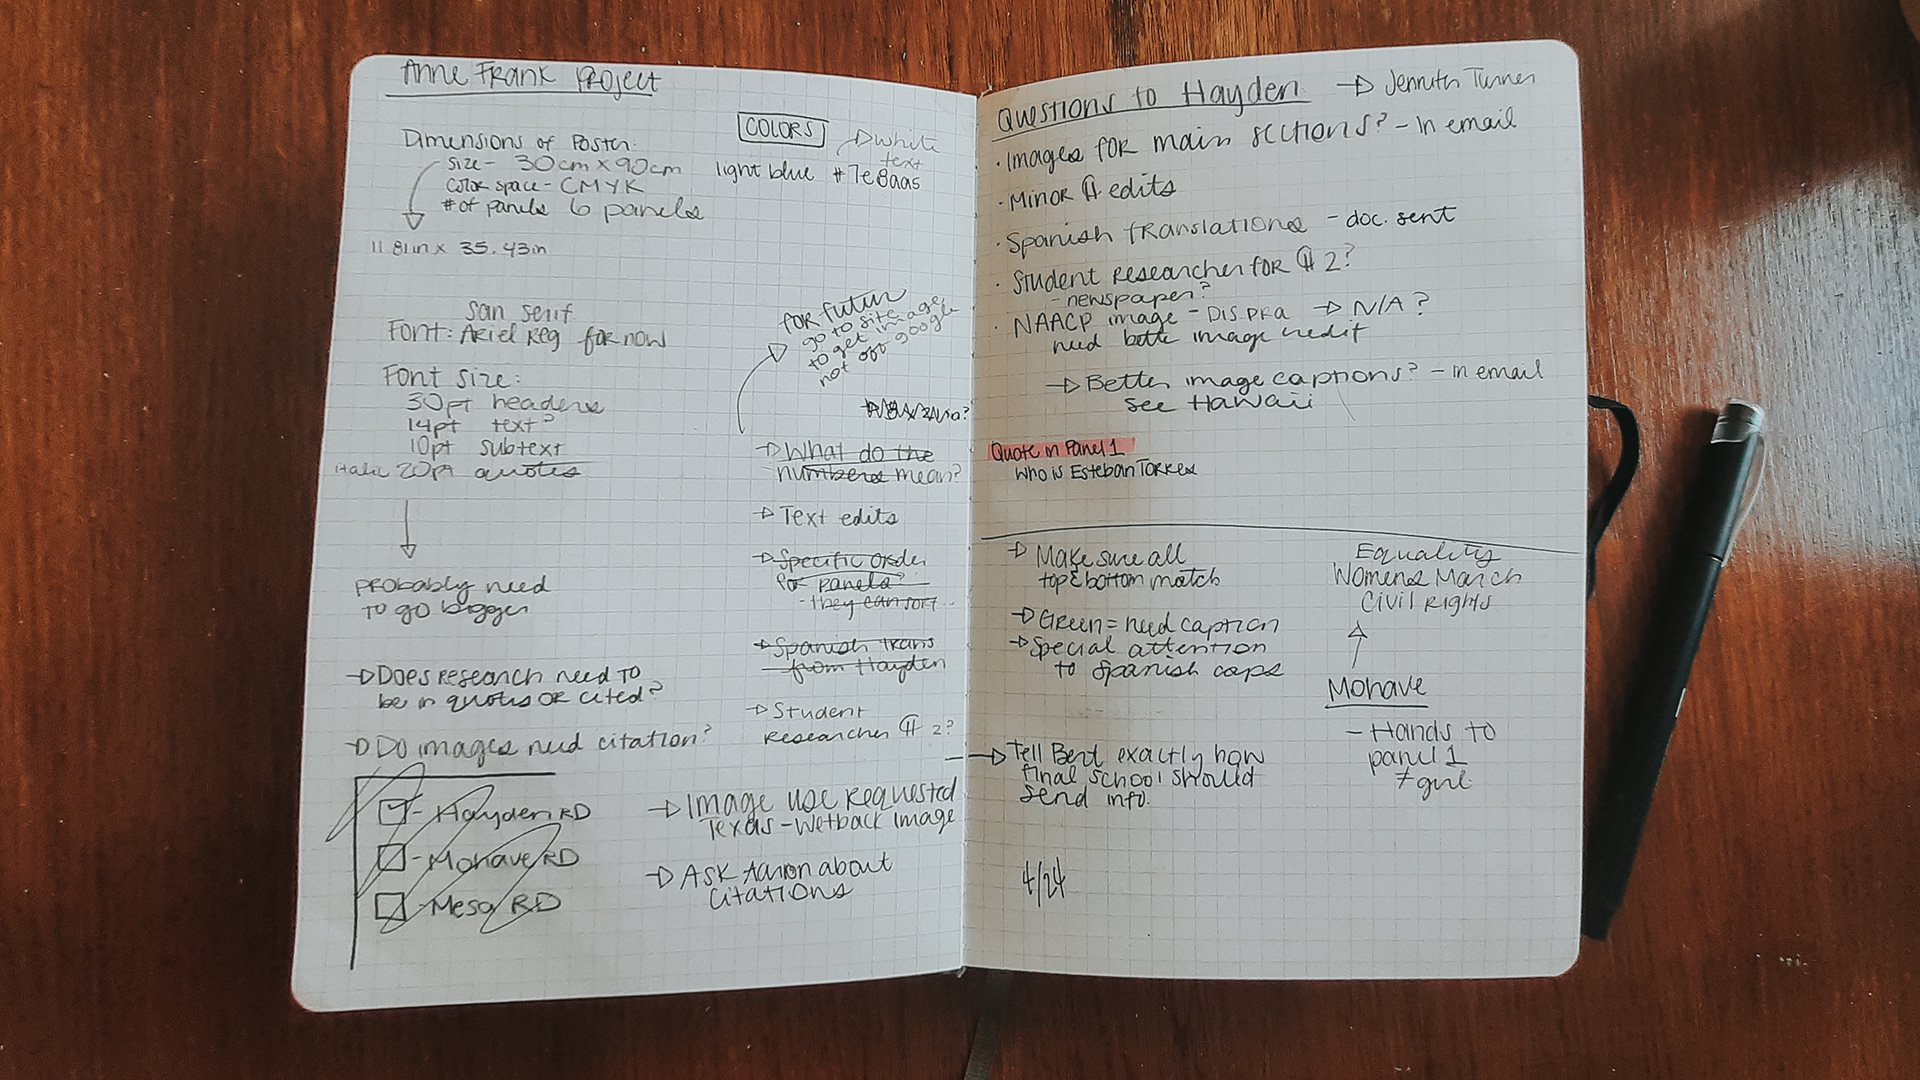 Anne Frank Project
Dimensions of Poster:
size - 30cm x 90cm
color space - CMYK
# of panels 6 panels
11.81in x 35.43in
COLORS
white
text
light blue #7e8aas
san serif
Font: Ariel Reg for now
Font size:
30pt headers
14pt text?
10pt subtext
italic 20pt quotes
probably need
to go bigger
→ Does research need to
be in quotes or cited?
→ Do images need citation?
- Hayden RD
- Mohave RD
- Mesa RD
for future
go to site
to get image
not off google
→ What do the
numbers mean?
→ Text edits
→ Specific order
for panels?
- they can sort
→ Spanish trans
from Hayden
→ Student
Researcher # 2?
→ Image use requested
Texas - Wetback image
→ Ask Aaron about
citations
Questions to Hayden → Turner
· Images for main sections? - in email
· Minor # edits
· Spanish translations - doc. sent
· Student researcher for # 2?
- newspaper?
· NAACP image - DIS PRA → N/A?
need better image credit
→ Better image captions? - in email
see Hawaii
Quote in Panel 1
Who is Esteban Torres
→ Make sure all
top & bottom match
→ Green = need caption
→ Special attention
to Spanish caps
→ Tell Bert exactly how
final school should
send info.
4/24
Equality
Womens March
Civil Rights
Mohave
- Hands to
panel 1
≠ girl